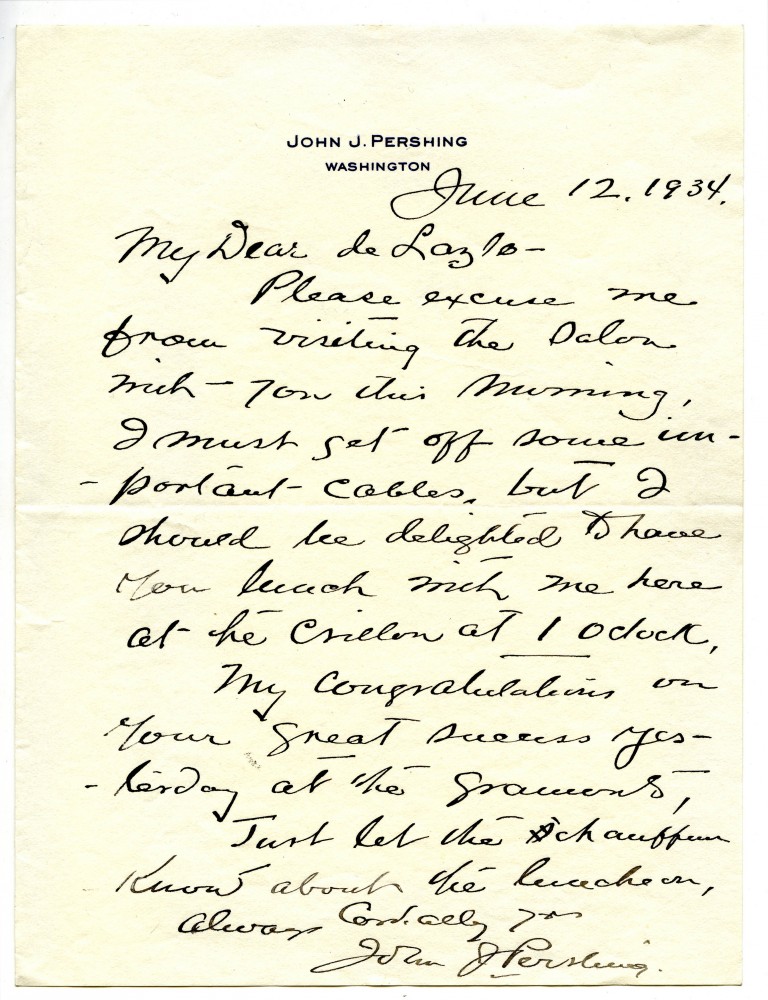 JOHN J. PERSHING
WASHINGTON
June 12. 1934.
My Dear de Lazlo-
Please excuse me
from visiting the Salon
with you this morning,
I must get off some im-
-portant cables, but I
should be delighted to have
you lunch with me here
at the Crillon at 1 Oclock,
My congratulations on
your great success yes-
-terday at the Gramonts,
Just let the chauffeur
know about the luncheon,
always Cordially yrs
John J Pershing.